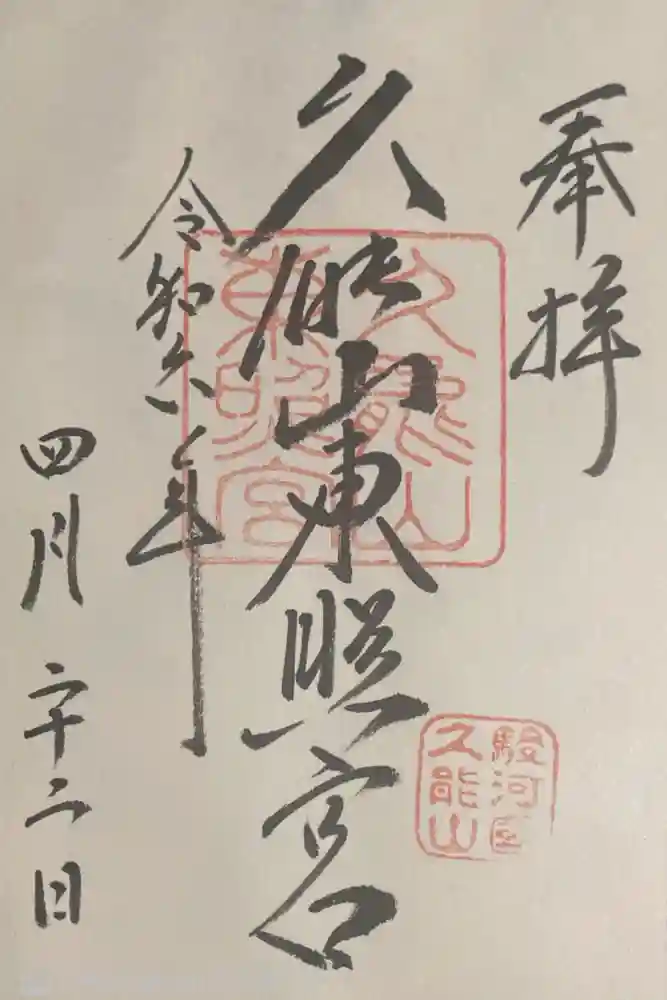 奉拝
久能山東照宮
久能山
東照宮
駿河国
久能山
令和六年
四月二十二日